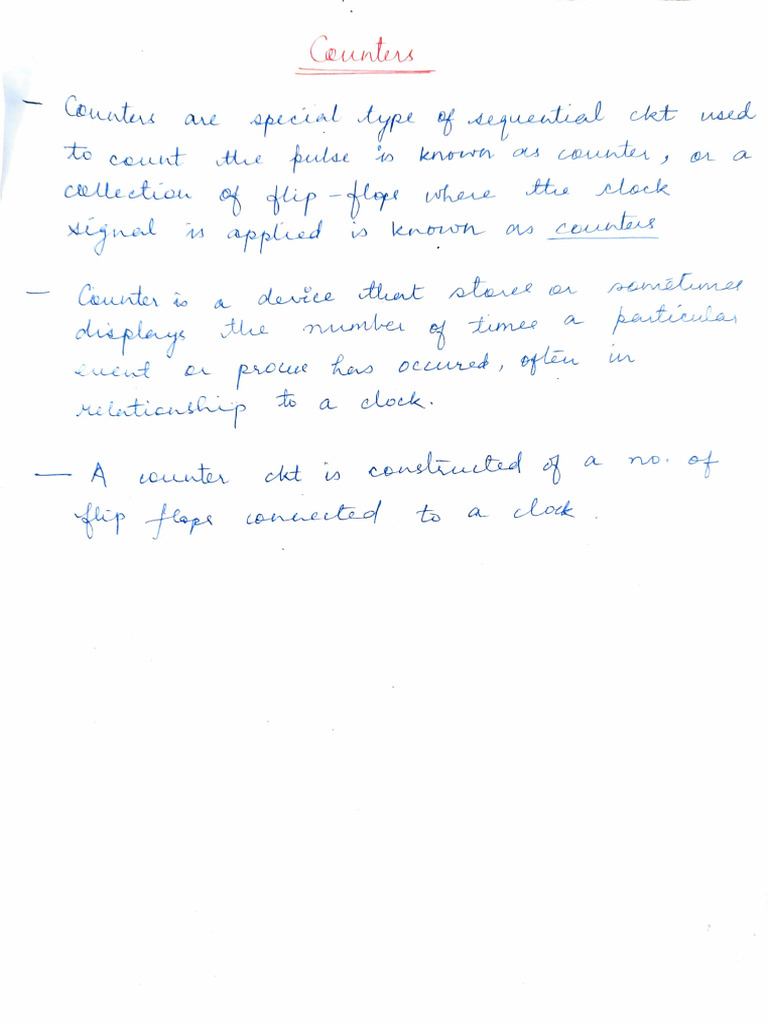 Counters
- Counters are special type of sequential ckt used
to count the pulse is known as counter, or a
collection of flip-flops where the clock
signal is applied is known as counters
- Counter is a device that stores or sometimes
displays the number of times a particular
event or process has occured, often in
relationship to a clock.
- A counter ckt is constructed of a no. of
flip flops connected to a clock.